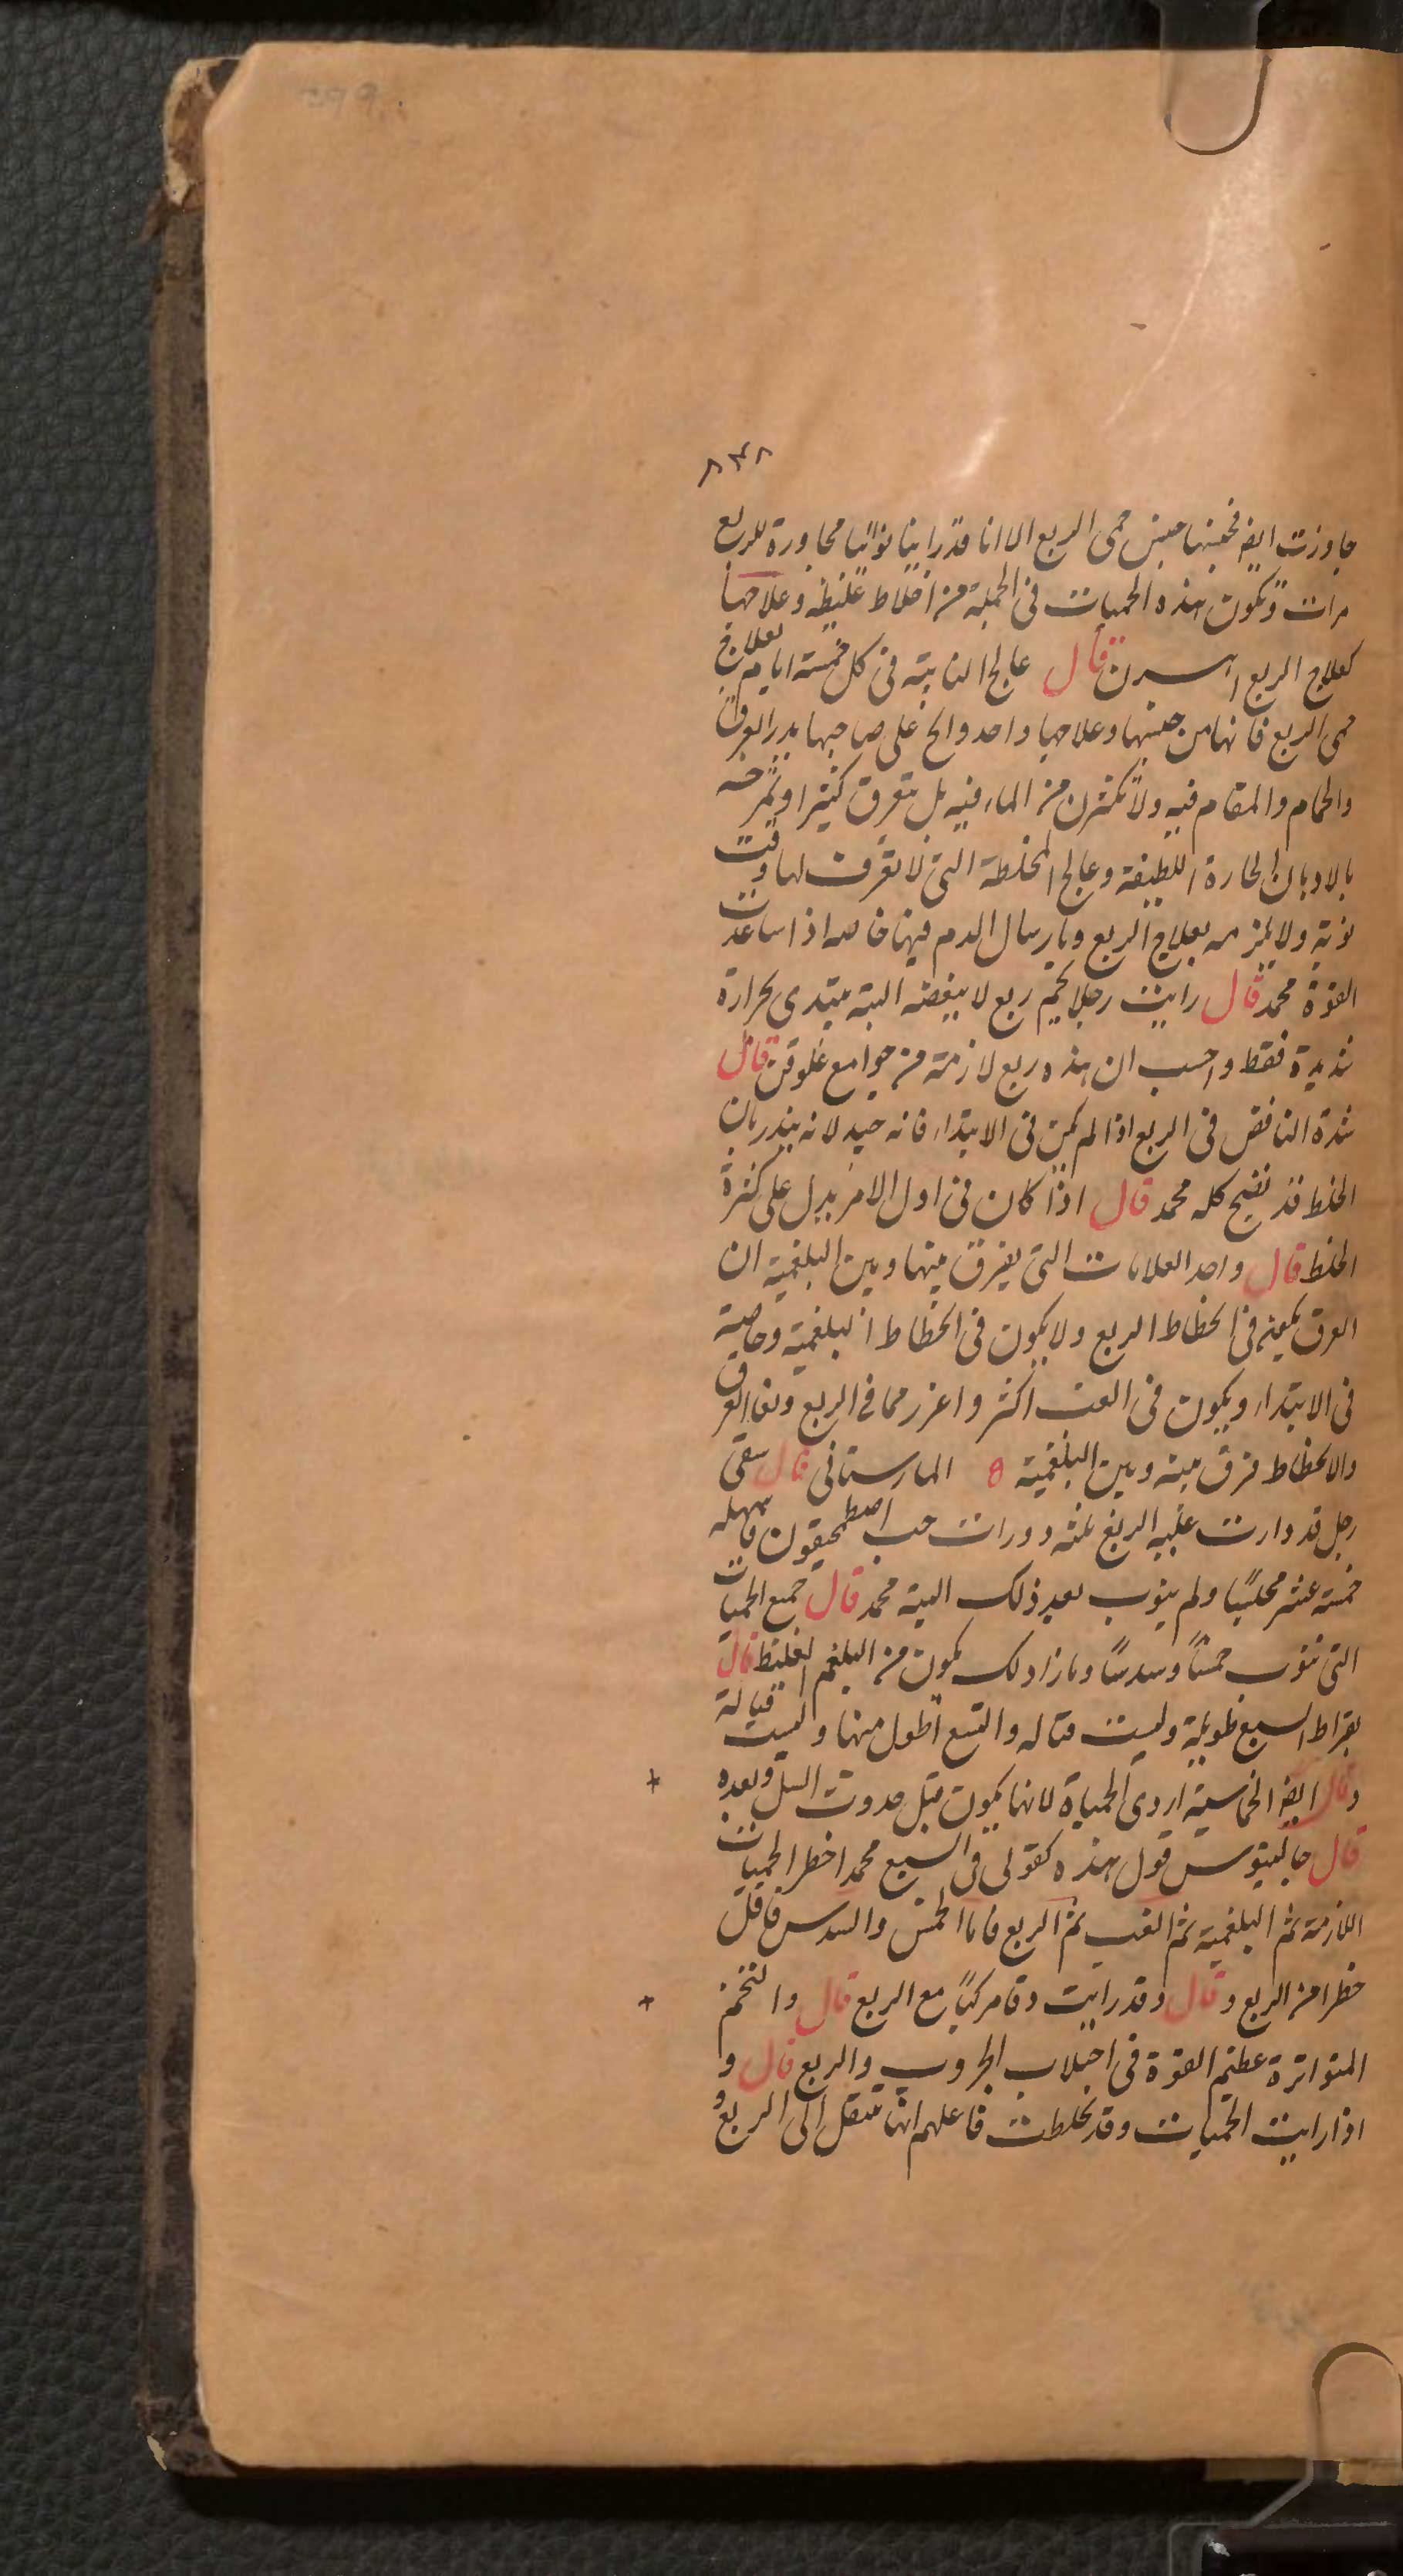 ٨٣٨
جاوزت ايض فجنسها جنس حمى الربع الا انا قد راينا نوائبا مجاورة للربع
مرات وتكون هذه الحميات فى الجملة من اخلاط غليظه وعلاجها
كعلاج الربع قال عالج النائبة فى كل خمسة ايام بعلاج
حمى الربع فانها من جنسها وعلاجها واحد والح على صاحبها بدر العرق
والحمام والمقام فيه ولا تكثرن من الماء فيه بل يتعرق كثيرا وتمرخه
بالادهان الحارة اللطيفة وعالج المخلطة التى لا تعرف لها وقت
نوبة ولا بعلاج الربع وبارسال الدم فيها خاصه اذا ساعدت
القوة محمد قال رايت رجلا يحم ربع لا ينفضه البتة يبتدى بحرارة
شديدة فقط واحسب ان هذه ربع لازمة من جوامع غلوقن قال
شدة النافض فى الربع اذا لم يكن فى الابتداء فانه جيد لانه ينذر بان
الخلط قد نضج كله محمد قال اذا كان فى اول الامر يدل على كثرة
الخلط قال واحد العلامات التى يفرق بينها وبين البلغمية ان
العرق فى انحطاط الربع ولا يكون فى انحطاط البلغمية وخاصية
فى الابتداء ويكون فى الغب اكثر واغزر مما فى الربع العرق
والانحطاط فرق بينه وبين البلغمية المارستانى قال سقى
رجل قد دارت عليه الربع ثلثه دورات حب اصطمحيقون فاسهله
خمسة عشر مجلسًا ولم ينوب بعد ذلك البتة محمد قال جميع الحميات
التى تنوب خمسًا وسدسًا وما زاد لك يكون من البلغم الغليظ قال
بقراط السبع طويلة وليست قتاله والتسع اطول منها وليست قتالة
وقال ايض الخماسية اردى الحمياة لانها يكون قبل حدوث السل وبعده
قال جالينوس قول هذه كقولى فى السبع محمد اخطر الحميات
اللازمة ثم البلغمية ثم الغب ثم الربع فاما الخمس والسدس فاقل
خطرا من الربع وقال وقد رايت دقا مركبًا مع الربع قال والتخم
المتواترة عظيم القوة فى اجتلاب الجروب والربع قال و
اذا رايت الحميات وقد تخلطت فاعلم انها تنتقل الى الربع و